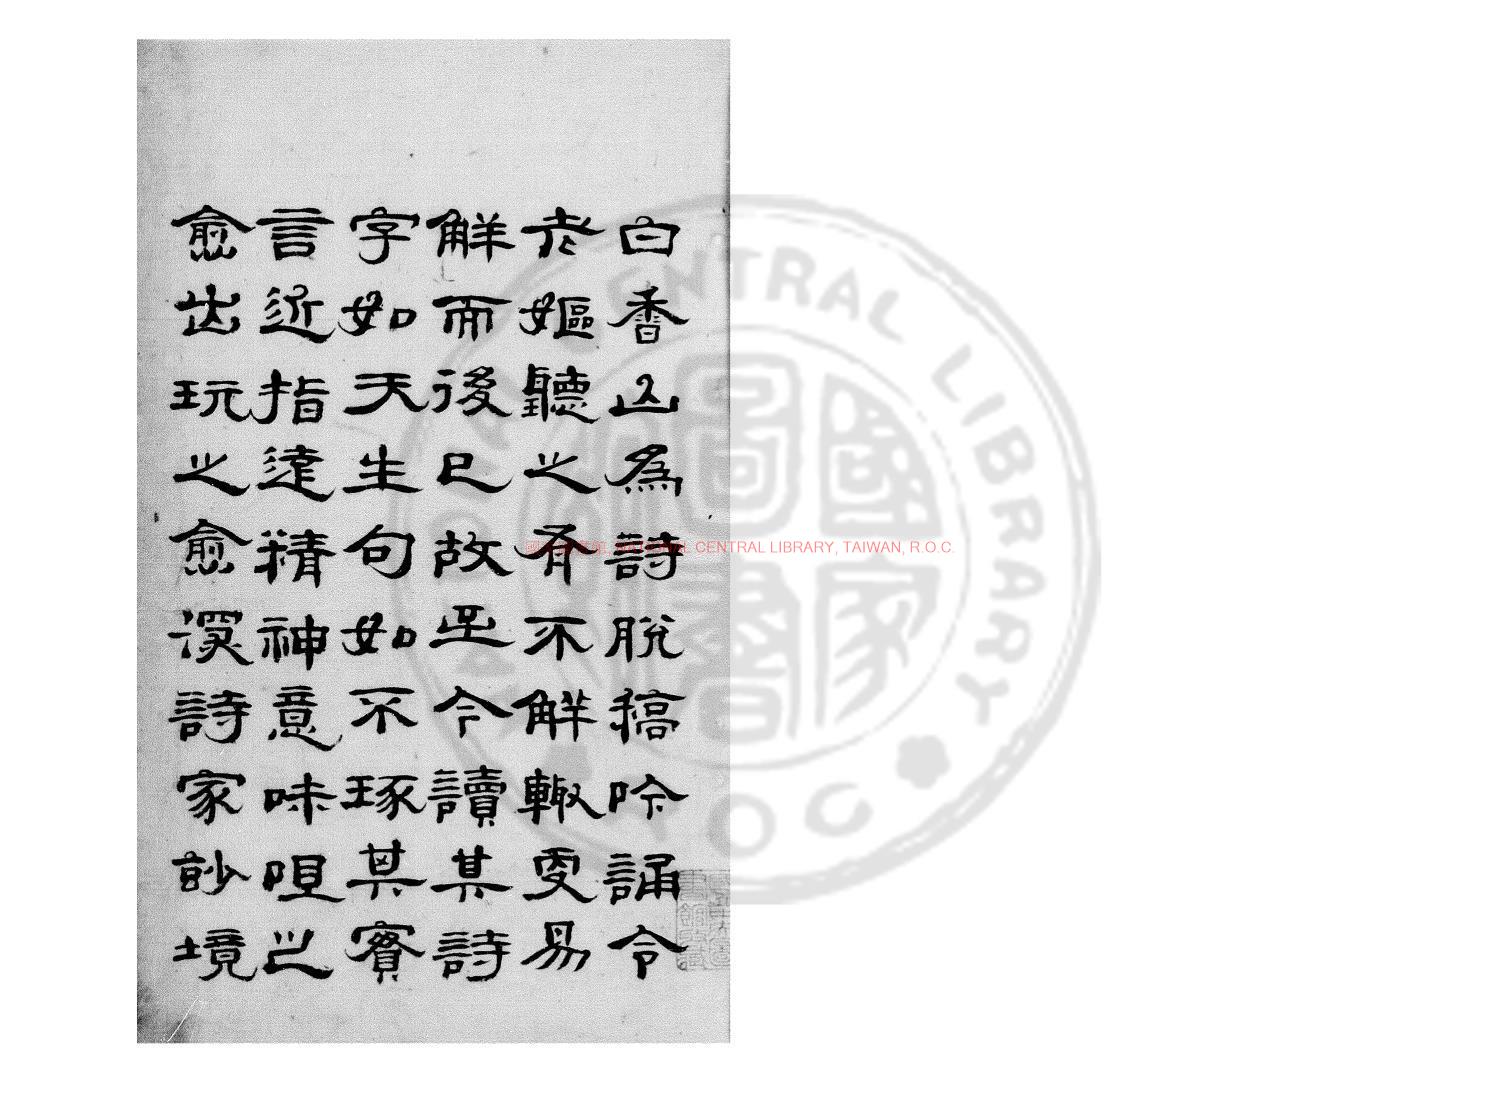 白香山為詩脫稿吟誦令
老嫗聽之有不解輙更易
解而後已故至今讀其詩
字如天生句如不琢其實
言近指遠精神意味咀之
愈出玩之愈深詩家玅境
國家圖書館, NATIONAL CENTRAL LIBRARY, TAIWAN, R.O.C.
NATIONAL CENTRAL LIBRARY
R.O.C.
國家圖書